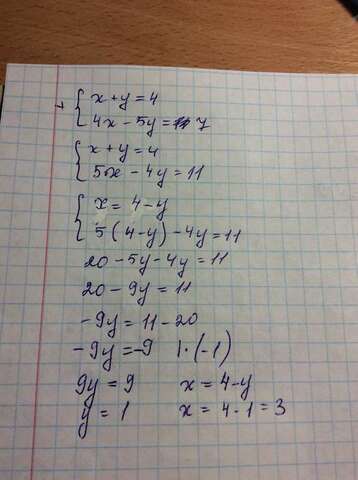 x + y = 4
4x - 5y = 7
x + y = 4
5x - 4y = 11
x = 4 - y
5(4 - y) - 4y = 11
20 - 5y - 4y = 11
20 - 9y = 11
-9y = 11 - 20
-9y = -9 | · (-1)
9y = 9 x = 4 - y
y = 1 x = 4 - 1 = 3